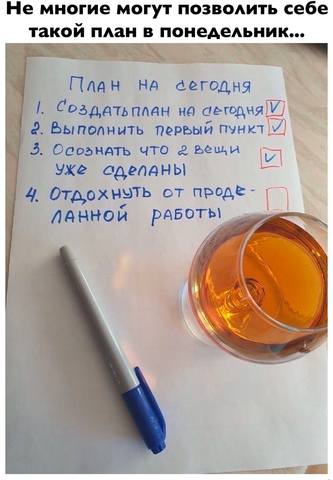 Не многие могут позволить себе
такой план в понедельник...
План на сегодня
1. Создать план на сегодня
2. Выполнить первый пункт
3. Осознать что 2 вещи
уже сделаны
4. Отдохнуть от проде-
ланной работы